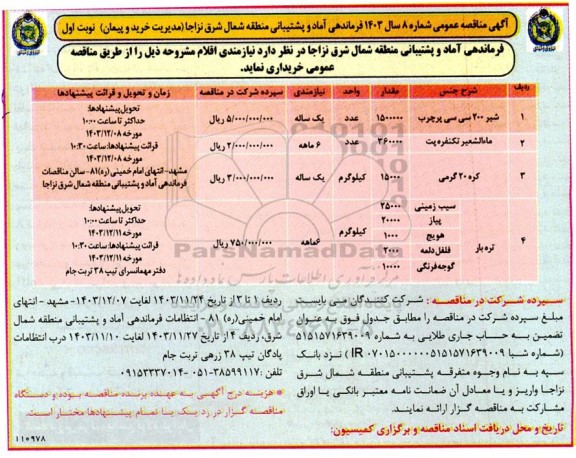 آگهی مناقصه عمومی شماره ۸ سال ۱۴۰۳ فرماندهی آماد و پشتیبانی منطقه شمال شرق نزاجا (مدیریت خرید و پیمان) نوبت اول
فرماندهی آماد و پشتیبانی منطقه شمال شرق نزاجا در نظر دارد نیازمندی اقلام مشروحه ذیل را از طریق مناقصه
عمومی خریداری نماید.
ردیف شرح جنس مقدار واحد نیازمندی سپرده شرکت در مناقصه زمان و تحویل و قرائت پیشنهادها
۱ شیر ۲۰۰ سی سی پرچرب ۱۵۰۰۰۰۰ عدد یک ساله ۵/۰۰۰/۰۰۰/۰۰۰ ریال
۲ ماءالشعیر تکنفره پت ۳۶۰۰۰۰ عدد ۶ ماهه ۲/۰۰۰/۰۰۰/۰۰۰ ریال
۳ کره ۲۰ گرمی ۱۵۰۰۰ کیلوگرم یک ساله ۳/۰۰۰/۰۰۰/۰۰۰ ریال
تحویل پیشنهادها:
حداکثر تا ساعت ۱۰:۰۰
مورخه ۱۴۰۳/۱۲/۰۸
قرائت پیشنهادها: ساعت ۱۰:۳۰
مورخه ۱۴۰۳/۱۲/۰۸
مشهد-انتهای امام خمینی (ره)۸۱-سالن مناقصات
فرماندهی آماد و پشتیبانی منطقه شمال شرق نزاجا
۴ تره بار کیلوگرم ۶ماهه ۷۵۰/۰۰۰/۰۰۰ ریال
سیب زمینی ۲۵۰۰۰
پیاز ۲۰۰۰۰
هویج ۱۰۰۰
فلفل دلمه ۲۰۰۰
گوجه فرنگی ۱۰۰۰۰
تحویل پیشنهادها:
حداکثر تا ساعت ۱۰:۰۰
مورخه ۱۴۰۳/۱۲/۱۱
قرائت پیشنهادها: ساعت ۱۰:۳۰
مورخه ۱۴۰۳/۱۲/۱۱
دفتر مهمانسرای تیپ ۳۸ تربت جام
سپرده شرکت در مناقصه : شرکت کنندگان می بایست
مبلغ سپرده شرکت در مناقصه را مطابق جدول فوق به عنوان
تضمین به حساب جاری طلایی به شماره ۵۱۵۱۵۷۱۶۳۹۰۰۹
(شماره شبا IR ۰۷۰۱۵۰۰۰۰۰۰۵۱۵۱۵۷۱۶۳۹۰۰۹) نزد بانک
سپه به نام وجوه متفرقه پشتیبانی منطقه شمال شرق
نزاجا واریز و یا معادل آن ضمانت نامه معتبر بانکی یا اوراق
مشارکت به مناقصه گزار ارائه نمایند.
تاریخ و محل دریافت اسناد مناقصه و برگزاری کمیسیون:
ردیف ۱ تا ۳ از تاریخ ۱۴۰۳/۱۱/۲۴ لغایت ۱۴۰۳/۱۲/۰۷- مشهد - انتهای
امام خمینی(ره) ۸۱ - انتظامات فرماندهی آماد و پشتیبانی منطقه شمال
شرق، ردیف ۴ از تاریخ ۱۴۰۳/۱۱/۲۷ لغایت ۱۴۰۳/۱۱/۱۰ درب انتظامات
پادگان تیپ ۳۸ زرهی تربت جام
تلفن: ۳۸۵۹۹۱۱۷-۰۵۱ - ۰۹۱۵۳۳۳۷۰۱۴
* هزینه درج آگهی به عهده برنده مناقصه بوده و دستگاه
مناقصه گزار در رد یک یا تمام پیشنهادها مختار است.
۱۱۰۹۷۸
ParsNamadData